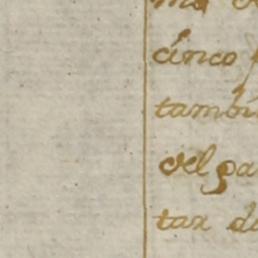 cinco
tambi
del pa
tax d